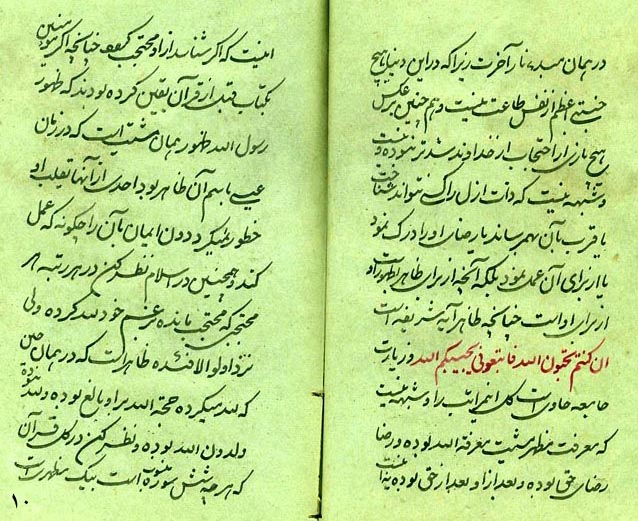 در همان مبدء نار آخرت زیرا که در این دنیا هیچ
جنتی اعظم از نفس طاعت نیست و هم چنین بر عکس
هیچ ناری از احتجاب از خداوند شدیدتر نبوده و نیست
و شبهه نیست که ذات ازل را کسی نتواند شناخت
یا قرب بآن بهم رساند یا رضای او را درک نمود
یا از برای آن عمل نمود بلکه آنچه از برای ظاهر بظهور او
از برای او است چنانچه ظاهر آیه شریفه است
ان کنتم تحبون الله فاتبعونی یحببکم الله و زیارت
جامعه حاوی است کل این مراتب را و شبهه نیست
که معرفت مظهر مشیت معرفة الله بوده و رضا
رضای حق بوده و بعد از او بعد از حق بوده
اینست که اگر شناسد از او محتجب چنانچه اگر مؤمنین
بکتاب قبل از قرآن یقین کرده بودند که ظهور
رسول الله ظهور همان مشیت است که در زمان
عیسی باسم آن ظاهر بود احدی از آنها تقلب او
خطور نمیکرد دون ایمان بآن را چگونه که عمل
کند و همچنین در اسلام نظر کن در هر رتبه هر
محتجبی که محتجب مانده بزعم خود لله کرده ولی
نزد اولو الافئده ظاهر است که در همان حین
که لله میکرده حجة الله بر او بالغ بوده و لله نبوده
و لدون الله بوده و نظر کن در کل قرآن
که هر چه شش سوره است بیک مظهری است
١٠